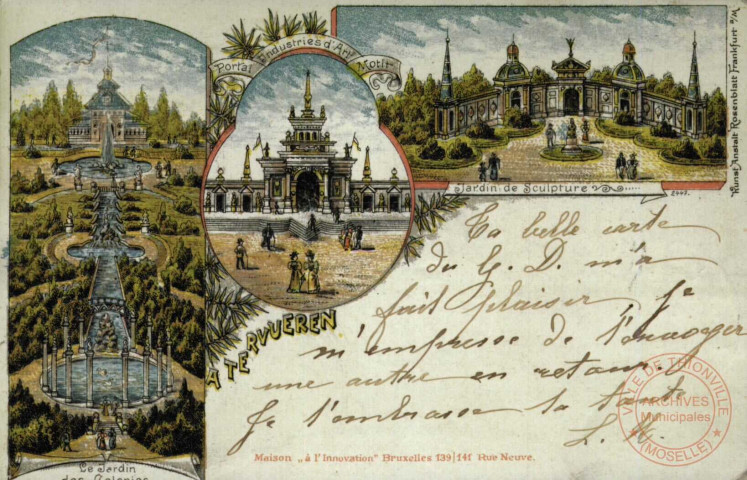 Portal Industries d'Art Motif
Kunst Anstalt Rosenblatt Frankfurt a/M
Jardin de Sculpture
2447.
A TERVUEREN
Ta belle carte
du G. D. m'a
fait plaisir, je
m'empresse de t'envoyer
une autre en retour.
Je t'embrasse ta tante
VILLE DE THIONVILLE
ARCHIVES
Municipales
(MOSELLE)
Le Jardin
des Colonies
Maison „à l'Innovation" Bruxelles 139/141 Rue Neuve.